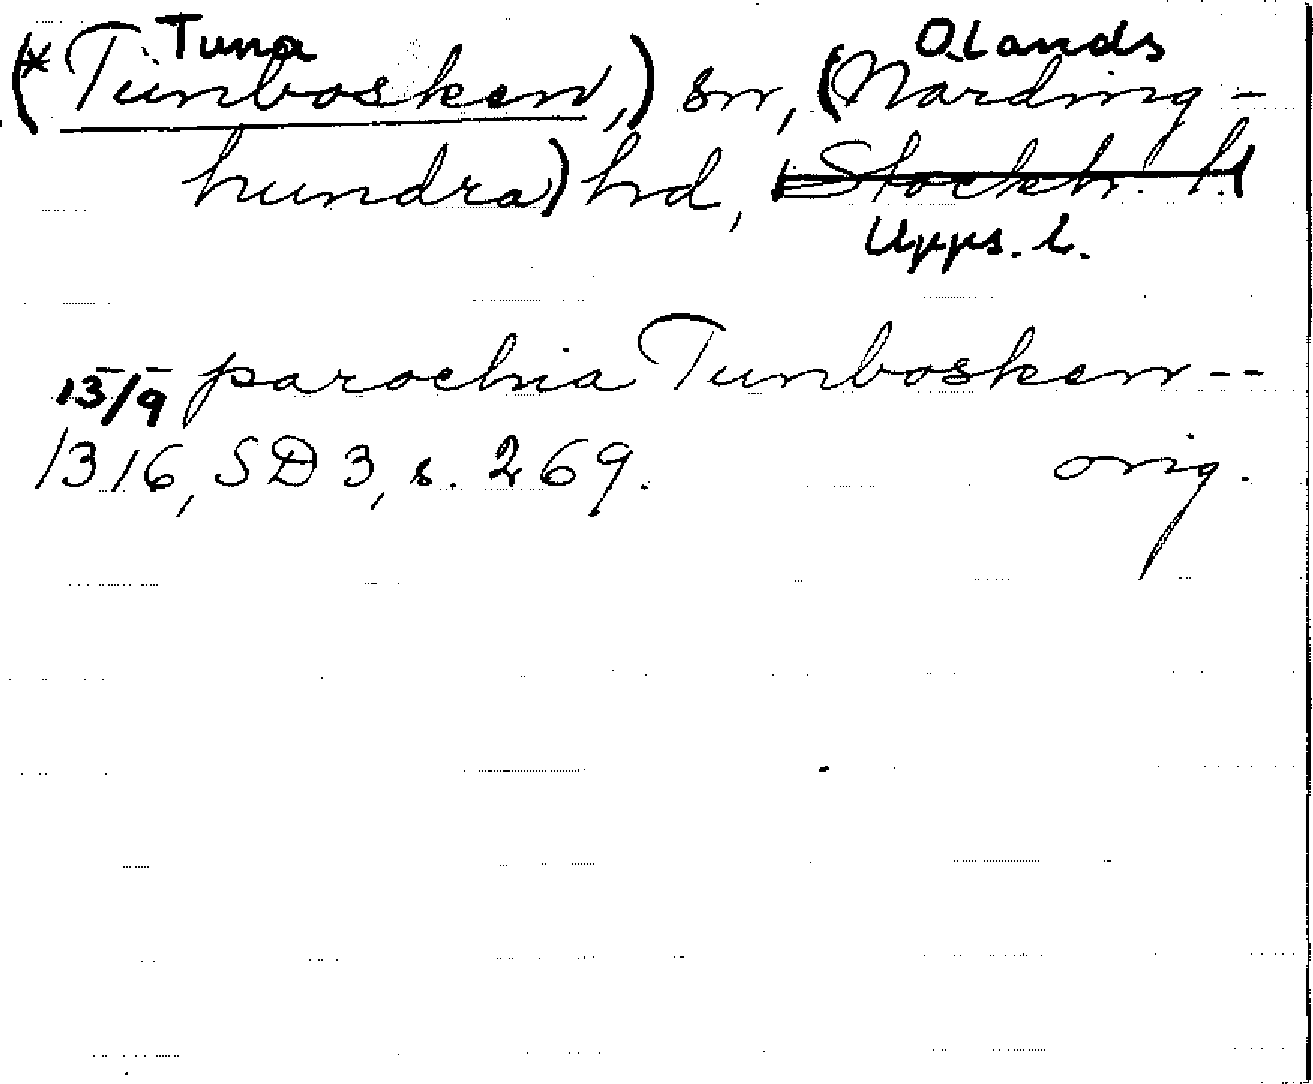 Tuna Olands
(*Tunbosken,) sn, (Narding-
hundra) hd, Stockh. l.
Upps. l.
parochia Tunbosken--
13/9
1316, SD 3, s. 269. orig.